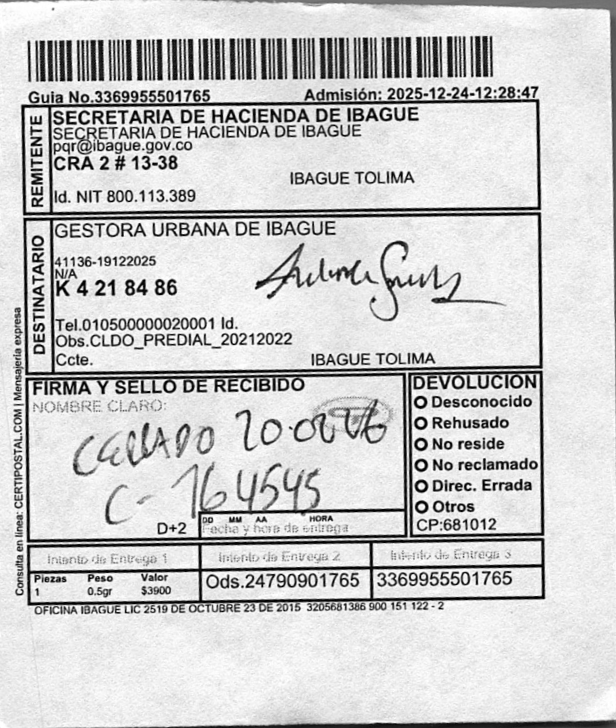 Guia No.3369955501765 Admisión: 2025-12-24-12:28:47
REMITENTE
SECRETARIA DE HACIENDA DE IBAGUE
SECRETARIA DE HACIENDA DE IBAGUE
pqr@ibague.gov.co
CRA 2 # 13-38
IBAGUE TOLIMA
Id. NIT 800.113.389
DESTINATARIO
GESTORA URBANA DE IBAGUE
41136-19122025
N/A
K 4 21 84 86
Tel.010500000020001 Id.
Obs.CLDO_PREDIAL_20212022
Ccte. IBAGUE TOLIMA
Consulta en linea: CERTIPOSTAL.COM | Mensajeria expresa
FIRMA Y SELLO DE RECIBIDO
NOMBRE CLARO:
CERRADO
C-764545
D+2
DD MM AA HORA
Fecha y hora de entrega
DEVOLUCIÓN
Desconocido
Rehusado
No reside
No reclamado
Direc. Errada
Otros
CP:681012
Intento de Entrega 1 Intento de Entrega 2 Intento de Entrega 3
Piezas Peso Valor
1 0.5gr $3900
Ods.24790901765 3369955501765
OFICINA IBAGUE LIC 2519 DE OCTUBRE 23 DE 2015 3205681386 900 151 122 - 2